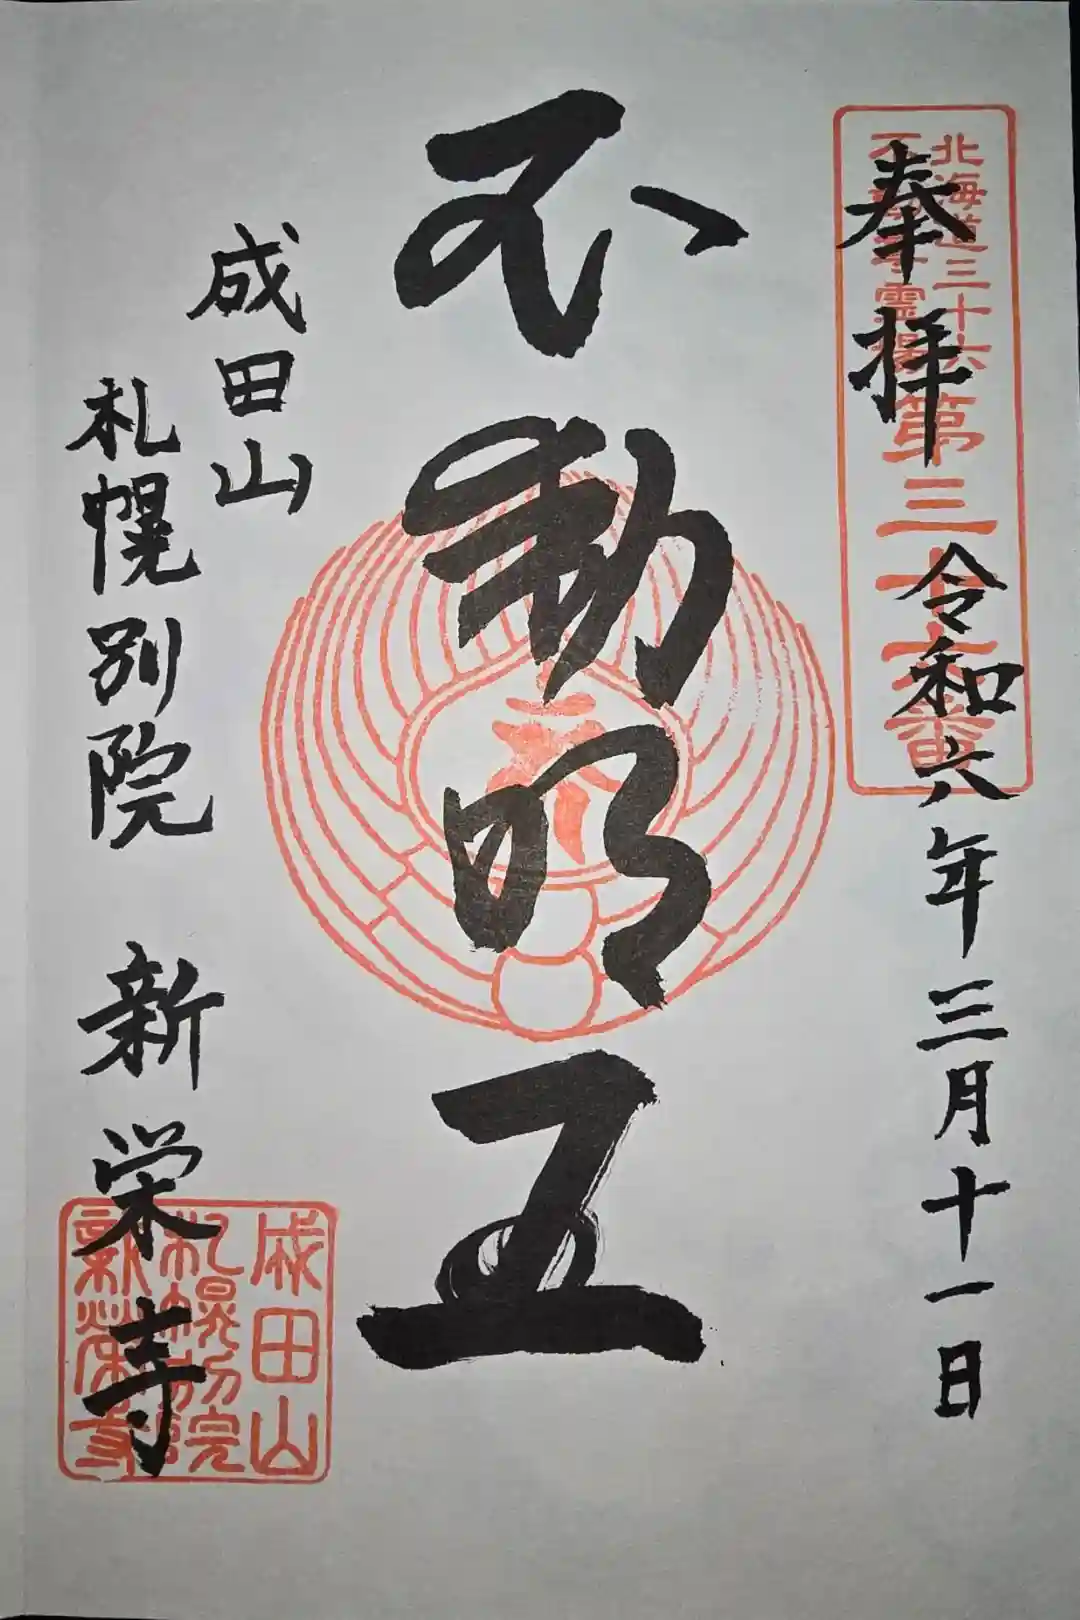 奉拝
令和六年三月十一日
北海道三十六
不動尊霊場
第三十六番
不動明王
成田山
札幌別院 新栄寺
成田山
札幌別院
新栄寺